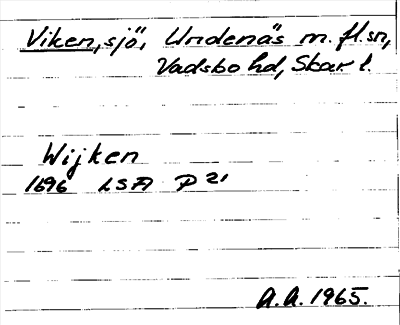 Viken, sjö, Undenäs m. fl. sn,
Vadsbo hd, Skar l.
Wijken
1696 LSA P 21
A.A. 1965.